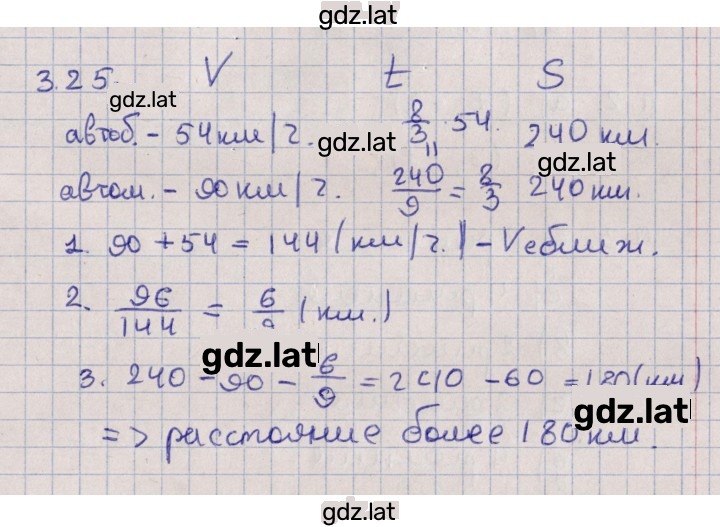 gdz.lat
3.25. V t S
gdz.lat
автоб. - 54 км/ч. 8/3 · 54. 240 км.
gdz.lat
gdz.lat
автом. - 90 км/ч. 240/9 = 8/3 240 км.
1. 90 + 54 = 144 (км/ч.) - Vсближ.
2. 96/144 = 6/9 (км.)
gdz.lat
3. 240 - 90 - 6/9 = 240 - 60 = 180 (км)
gdz.lat
=> расстояние более 180 км.
gdz.lat